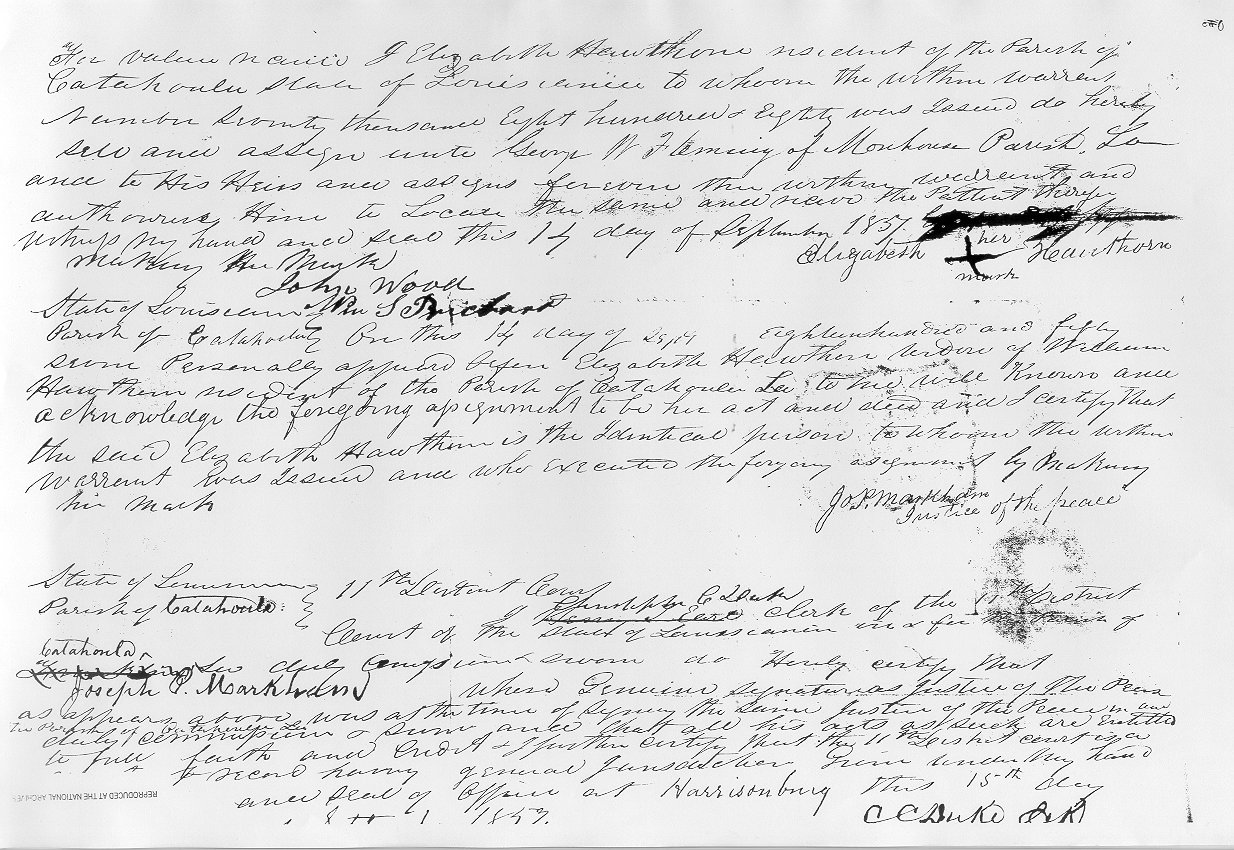 For value receive I Elizabeth Hawthorn resident of the Parish of
Catahoula State of Louisiana to whoom the within warrent
Number Seventy thousand Eight hundred & Eighty was Issued do hereby
sell and assign unto George W Fleming of Morehouse Parish, La
and to His Heirs and assigns forever the within warrent, and
authourise Him to Locate the same and receive the Pattent therefor
witness my hand and seal this 14 day of September 1857.
her
making her Mark Elizabeth + Hawthorn
mark
John Wood
State of Louisiana Wm S Prichard
Parish of Catahoula On this 14 day of Eighteenhundred and fifty
seven Personally appeared before Elizabeth Hawthorn widow of William
Hawthorn resident of the Parish of Catahoula La, to me well Known and
acknowledge the foregoing assignment to be her act and deed and I certify that
the said Elizabeth Hawthorn is the Identical person to whoom the within
warrent was Issued and who executed the forgoing assignment by making
her mark
Jos P. Markham
Justice of the peace
State of Louisiana 11th District Court
Parish of Catahoula: I C Duke Clerk of the 11th District
Court of the State of Louisiana in & for the Parish of
Catahoula
duly & sworn do Hereby certify that
Joseph P. Markham whose Genuine signature as Justice of the Peace
as appears above, was at the time of signing the same Justice of the Peace in and
for Parish of Catahoula La
duly commission & sworn and that all his acts as such are entitled
to full faith and credit & I further certify that the 11th District court is a
court of record having general Jurisdiction Given under My hand
and seal of Office at Harrisonburg this 15th day
1857.
C C Duke Clk
REPRODUCED AT THE NATIONAL ARCHIVES